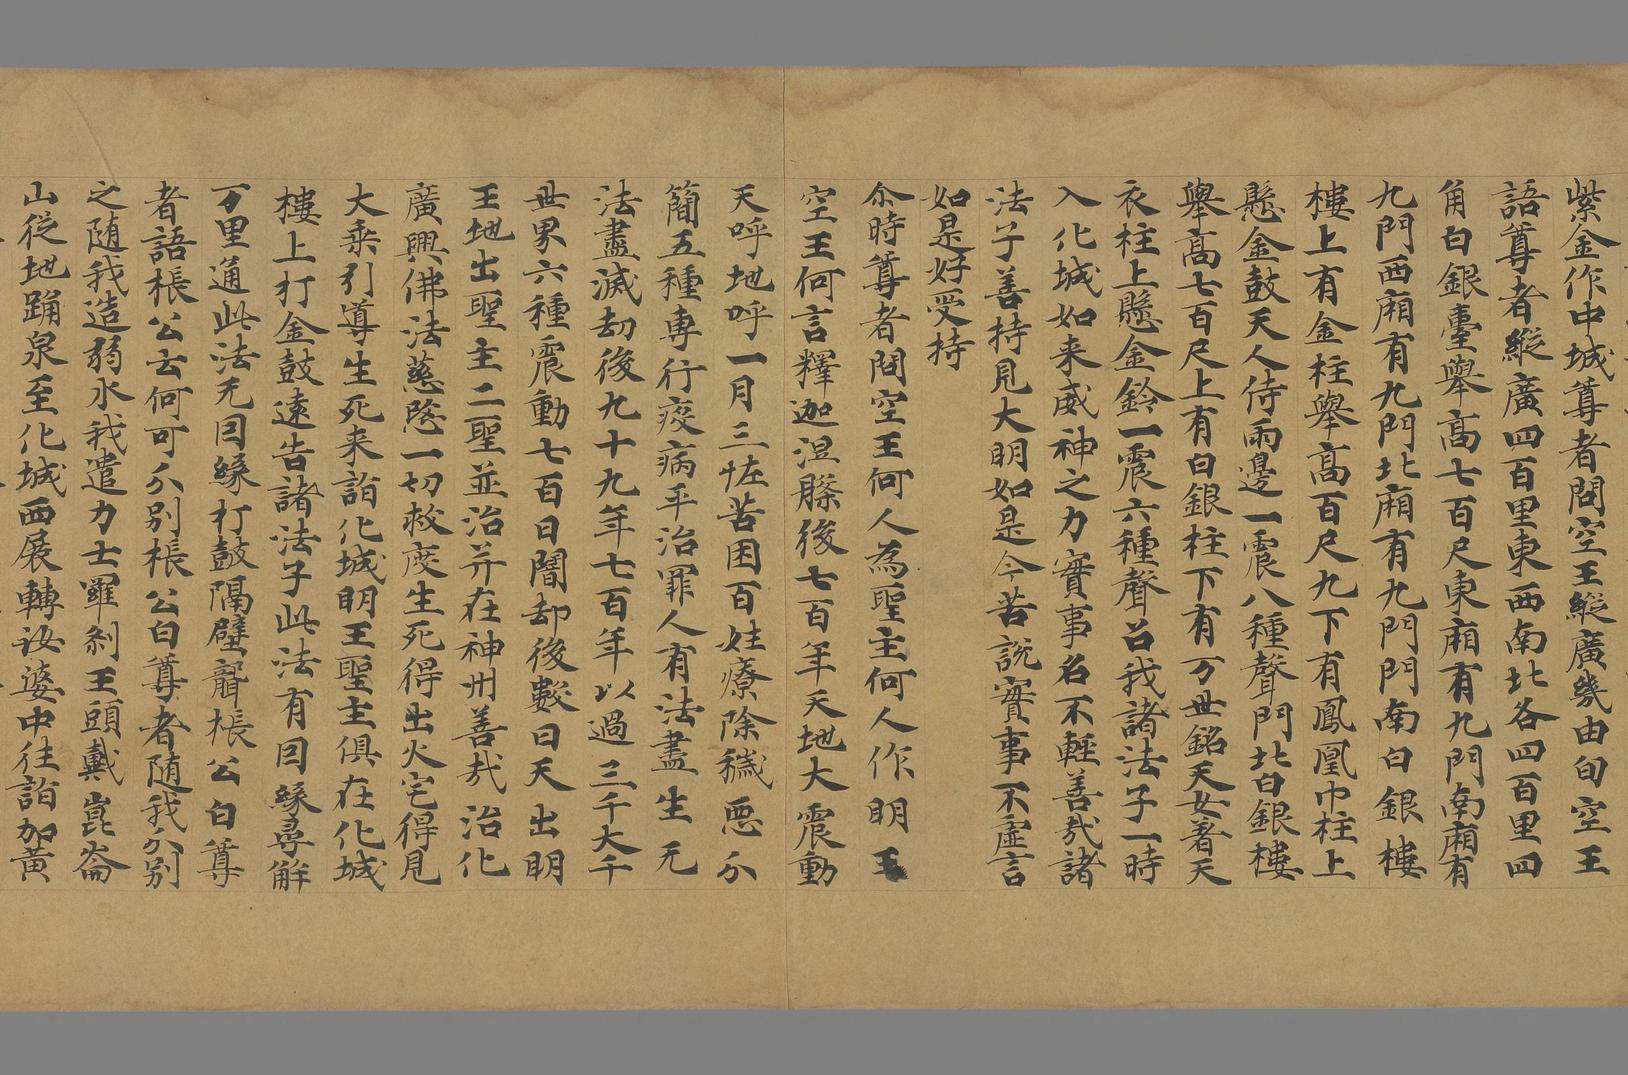 紫金作中城尊者問空王縱廣幾由旬空王
語尊者縱廣四百里東西南北各四百里四
角白銀臺舉高七百尺東廂有九門南廂有
九門西廂有九門北廂有九門門南白銀樓
樓上有金柱舉高百尺九下有鳳凰巾柱上
懸金鼓天人侍兩邊一震八種聲門北白銀樓
舉高七百尺上有白銀柱下有万世銘天女著天
衣柱上懸金鈴一震六種聲召我諸法子一時
入化城如来威神之力實事名不輕善哉諸
法子善持見大明如是今苦說實事不虛言
如是好受持
尒時尊者問空王何人為聖主何人作明王
空王何言釋迦涅槃後七百年天地大震動
天呼地呼一月三怪苦困百姓療除穢惡分
簡五種専行疫病平治罪人有法盡生无
法盡滅劫後九十九年七百年以過三千大千
世界六種震動七百日闇却後數日天出明
王地出聖主二聖並治并在神州善哉治化
廣興佛法慈愍一切救度生死得出火宅得見
大乘引導生死来詣化城明王聖主俱在化城
樓上打金鼓遠告諸法子此法有目緣尋解
万里通此法无目緣打鼓隔壁聾棖公白尊
者語棖公去何可分別棖公白尊者随我分別
之随我造弱水我遣力士羅剎王頭戴崑崙
山從地踊泉至化城西展轉娑婆中往詣加黃